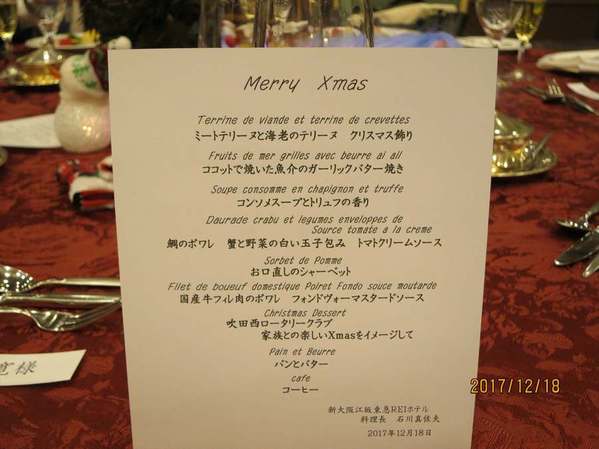 Merry Xmas
Terrine de viande et terrine de crevettes
ミートテリーヌと海老のテリーヌ クリスマス飾り
Fruits de mer grilles avec beurre ai ail
ココットで焼いた魚介のガーリックバター焼き
Soupe consomme en chapignon et truffe
コンソメスープとトリュフの香り
Daurade crabu et legumes enveloppes de
Source tomate a la creme
鯛のポワレ 蟹と野菜の白い玉子包み トマトクリームソース
Sorbet de Pomme
お口直しのシャーベット
Filet de boueuf domestique Poiret Fondo souce moutarde
国産牛フィレ肉のポワレ フォンドヴォーマスタードソース
Christmas Dessert
吹田西ロータリークラブ
家族との楽しいXmasをイメージして
Pain et Beurre
パンとバター
cafe
コーヒー
新大阪江坂東急REIホテル
料理長 石川真佐夫
2017年12月18日
寛様
2017/12/18